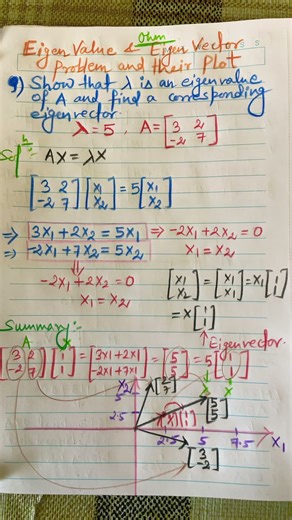 Ohm
Eigen Value & Eigen Vector
Problem and their Plot
9) Show that λ is an eigenvalue
of A and find a corresponding
eigenvector.
λ = 5, A = [3 2; -2 7]
Solⁿ:- AX = λX
[3 2; -2 7] [x₁; x₂] = 5 [x₁; x₂]
⇒ 3x₁ + 2x₂ = 5x₁ ⇒ -2x₁ + 2x₂ = 0
⇒ -2x₁ + 7x₂ = 5x₂ x₁ = x₂
-2x₁ + 2x₂ = 0
x₁ = x₂
[x₁; x₂] = [x₁; x₁] = x₁ [1; 1]
= x [1; 1]
Summary:-
Eigenvector
A x
[3 2; -2 7] [1; 1] = [3x1 + 2x1; -2x1 + 7x1] = [5; 5] = 5 [1; 1]
λ x
x₂
[2; 7]
5
2.5
[5; 5]
[1; 1]
2.5 5 7.5 x₁
[3; -2]